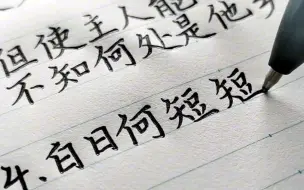 但使主人能
不知何处是他乡
4.白日何短短